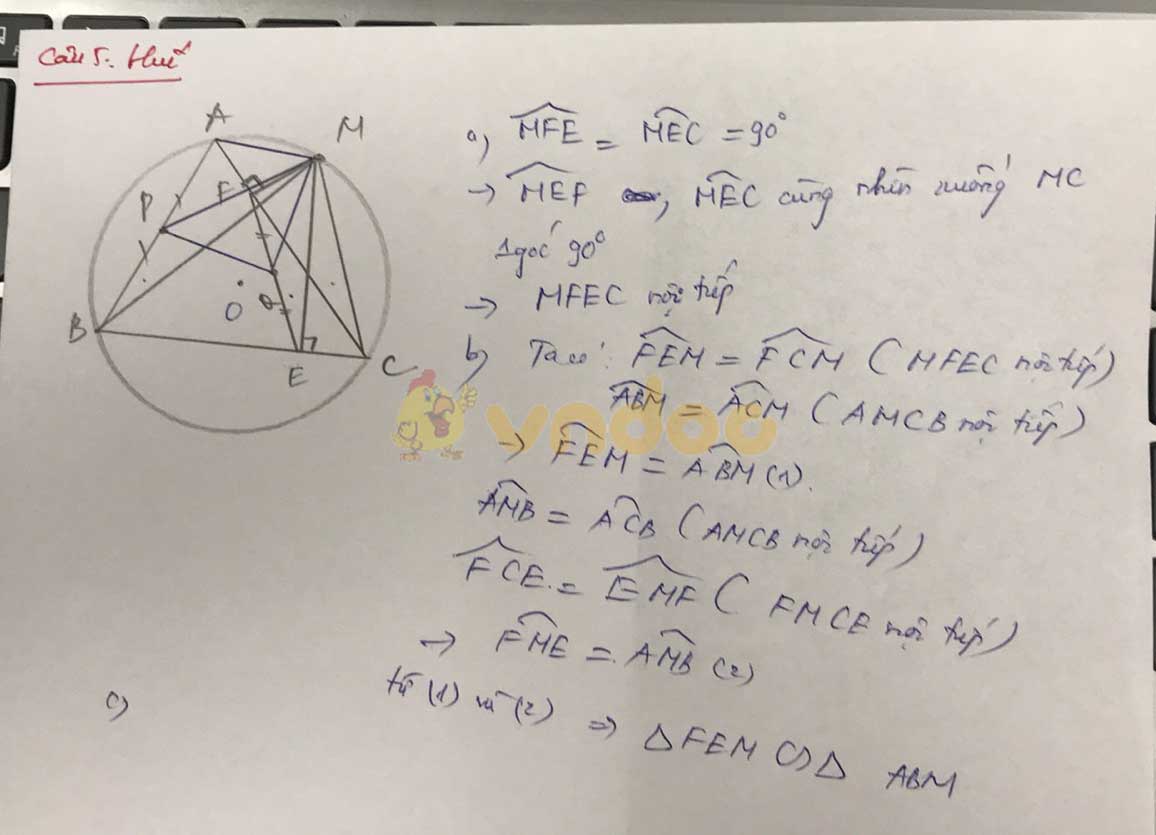 Câu 5: Huế
A
M
F
P
O
Q
B
E
C
a) MFE = MEC = 90°
→ MEF, MEC cùng nhìn xuống MC
1 góc 90°
→ MFEC nội tiếp
b) Ta có: FEM = FCM (MFEC nội tiếp)
ABM = ACM (AMCB nội tiếp)
→ FEM = ABM (1).
AMB = ACB (AMCB nội tiếp)
FCE = EMF (FMCE nội tiếp)
→ FME = AMB (2)
từ (1) và (2) => ΔFEM ∽ Δ ABM
c)
vndoc